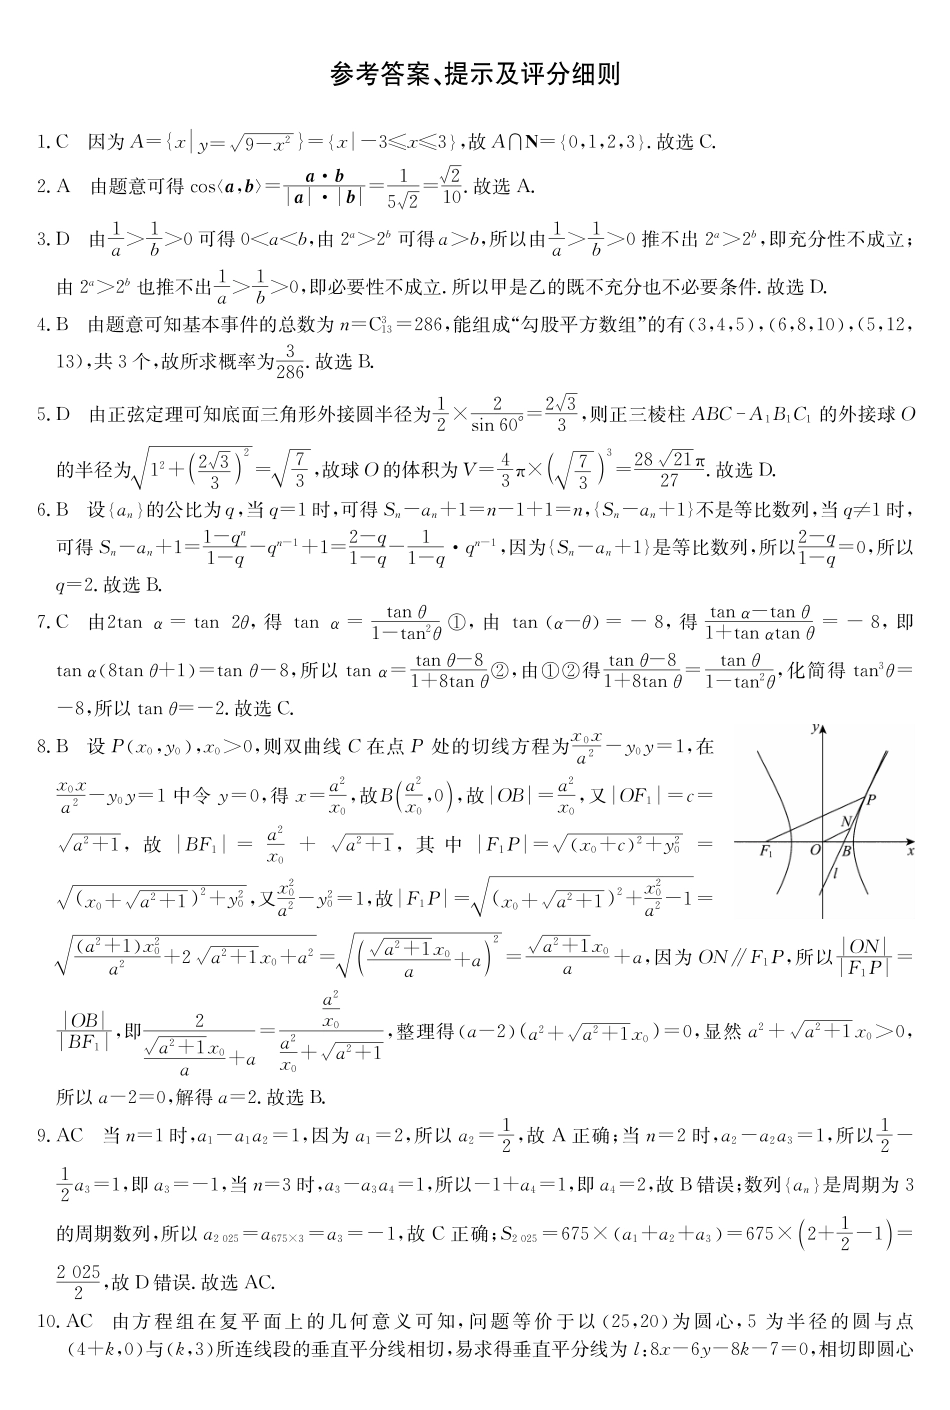 参考答案、提示及评分细则
1. C  因为 A={x|y=√(9-x²)}={x|-3≤x≤3},故 A∩N={0,1,2,3}. 故选 C.
2. A  由题意可得 cos⟨a,b⟩=(a·b)/(|a|·|b|)=1/(5√2)=√2/10. 故选 A.
3. D  由 1/a>1/b>0 可得 0<a<b,由 2ᵃ>2ᵇ 可得 a>b,所以由 1/a>1/b>0 推不出 2ᵃ>2ᵇ,即充分性不成立;
由 2ᵃ>2ᵇ 也推不出 1/a>1/b>0,即必要性不成立. 所以甲是乙的既不充分也不必要条件. 故选 D.
4. B  由题意可知基本事件的总数为 n=C₁₃³=286,能组成“勾股平方数组”的有(3,4,5),(6,8,10),(5,12,
13),共 3 个,故所求概率为 3/286. 故选 B.
5. D  由正弦定理可知底面三角形外接圆半径为 1/2×2/(sin 60°)=2√3/3,则正三棱柱 ABC-A₁B₁C₁ 的外接球 O
的半径为 √(1²+(2√3/3)²)=√(7/3),故球 O 的体积为 V=4/3π×(√(7/3))³=28√21π/27. 故选 D.
6. B  设{aₙ}的公比为 q,当 q=1 时,可得 Sₙ-aₙ+1=n-1+1=n,{Sₙ-aₙ+1}不是等比数列,当 q≠1 时,
可得 Sₙ-aₙ+1=(1-qⁿ)/(1-q)-qⁿ⁻¹+1=(2-q)/(1-q)-1/(1-q)·qⁿ⁻¹,因为{Sₙ-aₙ+1}是等比数列,所以(2-q)/(1-q)=0,所以
q=2. 故选 B.
7. C  由2tan α=tan 2θ,得 tan α=tan θ/(1-tan²θ)①,由 tan (α-θ)=-8,得 (tan α-tan θ)/(1+tan αtan θ)=-8,即
tan α(8tan θ+1)=tan θ-8,所以 tan α=(tan θ-8)/(1+8tan θ)②,由①②得(tan θ-8)/(1+8tan θ)=tan θ/(1-tan²θ),化简得 tan³θ=
-8,所以 tan θ=-2. 故选 C.
8. B  设 P(x₀,y₀),x₀>0,则双曲线 C 在点 P 处的切线方程为 x₀x/a²-y₀y=1,在
x₀x/a²-y₀y=1 中令 y=0,得 x=a²/x₀,故B(a²/x₀,0),故|OB|=a²/x₀,又|OF₁|=c=
√(a²+1),故 |BF₁|=a²/x₀+√(a²+1),其中 |F₁P|=√((x₀+c)²+y₀²)=
√((x₀+√(a²+1))²+y₀²),又x₀²/a²-y₀²=1,故|F₁P|=√((x₀+√(a²+1))²+x₀²/a²-1)=
√((a²+1)x₀²/a²+2√(a²+1)x₀+a²)=√((√(a²+1)x₀/a+a)²)=√(a²+1)x₀/a+a,因为 ON∥F₁P,所以|ON|/|F₁P|=
|OB|/|BF₁|,即2/(√(a²+1)x₀/a+a)=(a²/x₀)/(a²/x₀+√(a²+1)),整理得(a-2)(a²+√(a²+1)x₀)=0,显然 a²+√(a²+1)x₀>0,
所以 a-2=0,解得 a=2. 故选 B.
y
P
N
F₁
O
B
x
l
9. AC  当 n=1 时,a₁-a₁a₂=1,因为 a₁=2,所以 a₂=1/2,故 A 正确;当 n=2 时,a₂-a₂a₃=1,所以1/2-
1/2a₃=1,即 a₃=-1,当 n=3 时,a₃-a₃a₄=1,所以-1+a₄=1,即 a₄=2,故 B 错误;数列{aₙ}是周期为 3
的周期数列,所以 a₂ ₀₂₅=a₆₇₅ₓ₃=a₃=-1,故 C 正确;S₂ ₀₂₅=675×(a₁+a₂+a₃)=675×(2+1/2-1)=
2 025/2,故 D 错误. 故选 AC.
10. AC  由方程组在复平面上的几何意义可知,问题等价于以(25,20)为圆心,5 为半径的圆与点
(4+k,0)与(k,3)所连线段的垂直平分线相切,易求得垂直平分线为 l:8x-6y-8k-7=0,相切即圆心